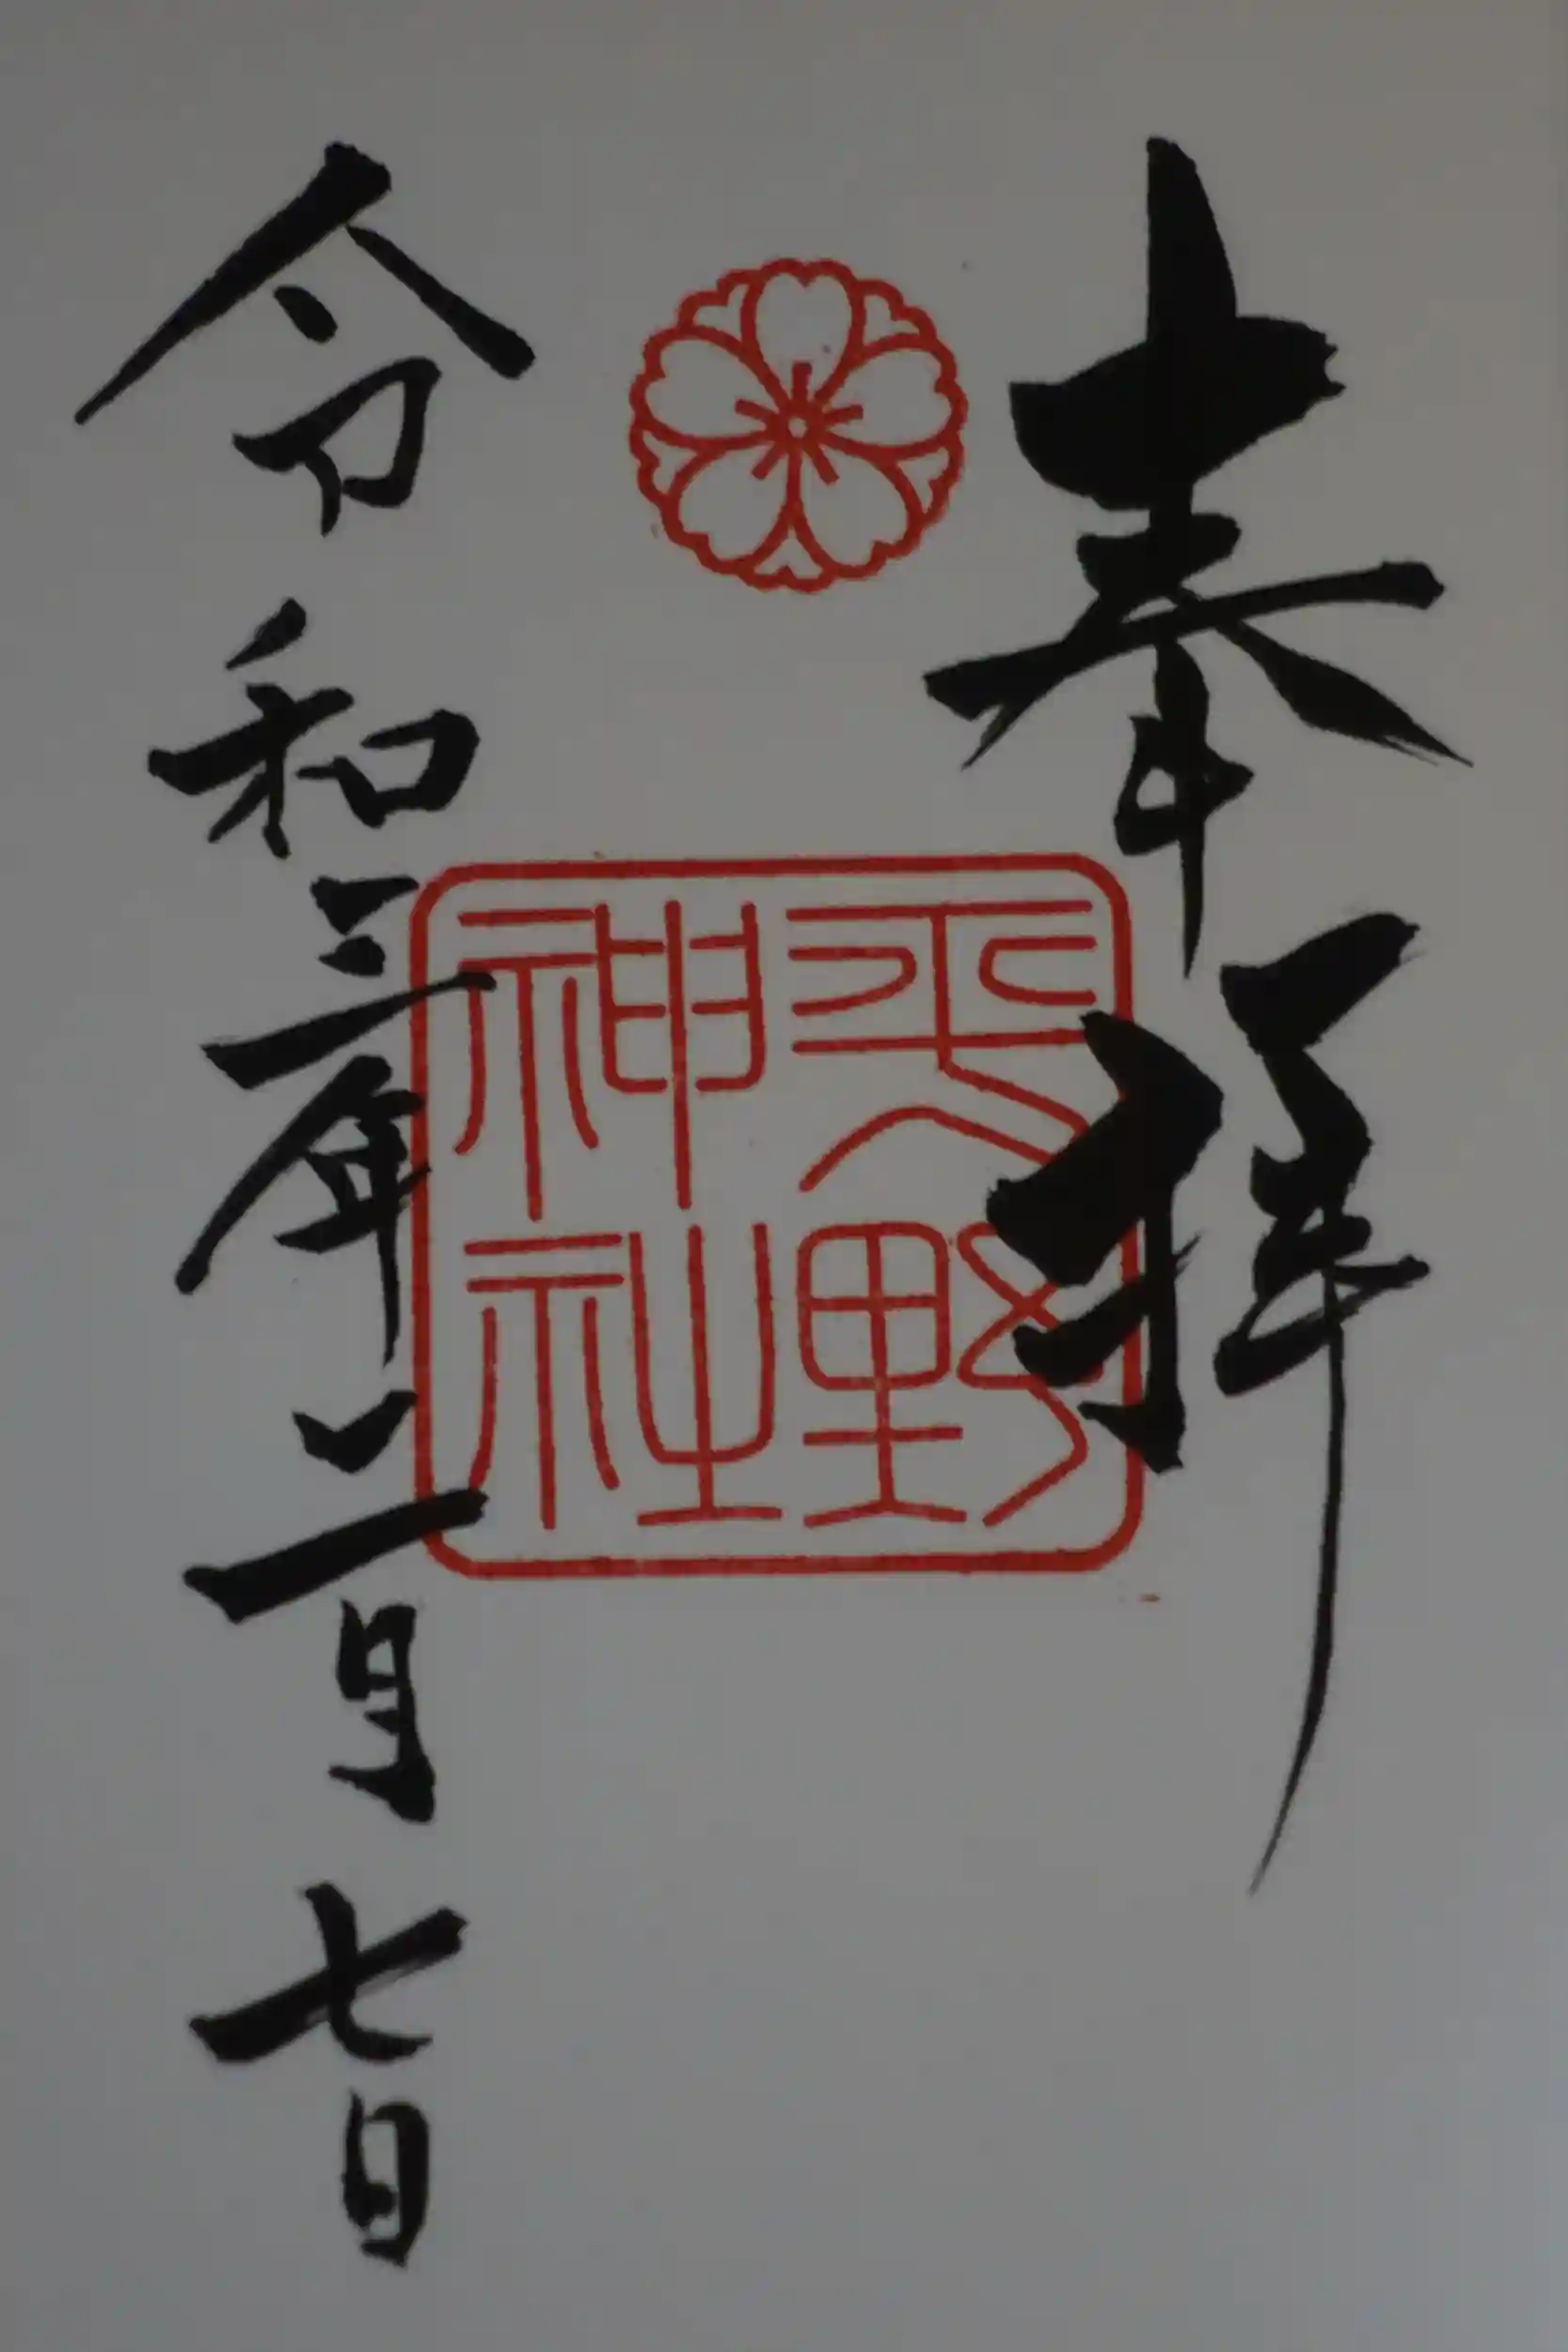 奉拝
平野
神社
令和三年二月七日